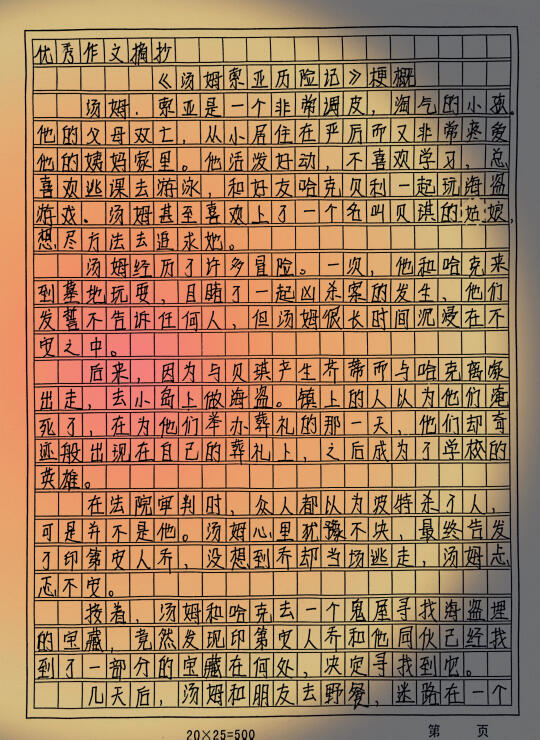 优秀作文摘抄
《汤姆索亚历险记》梗概
汤姆.索亚是一个非常调皮,淘气的小孩。
他的父母双亡,从小居住在严厉而又非常疼爱
他的姨妈家里。他活发好动,不喜欢学习,总
喜欢逃课去游泳,和好友哈克贝利一起玩海盗
游戏、汤姆甚至喜欢上了一个名叫贝琪的姑娘,
想尽方法去追求她。
汤姆经历了许多冒险。一次,他和哈克来
到墓地玩耍,目睹了一起凶杀案的发生,他们
发誓不告诉任何人,但汤姆很长时间沉浸在不
安之中。
后来,因为与贝琪产生芥蒂而与哈克离家
出走,去小岛上做海盗。镇上的人以为他们淹
死了,在为他们举办葬礼的那一天,他们却奇
迹般出现在自己的葬礼上,之后成为了学校的
英雄。
在法院审判时,众人都以为波特杀了人,
可是并不是他。汤姆心里犹豫不决,最终告发
了印第安人乔,没想到乔却当场逃走,汤姆忐
忑不安。
接着,汤姆和哈克去一个鬼屋寻找海盗埋
的宝藏,竟然发现印第安人乔和他同伙已经找
到了一部分的宝藏在何处,决定寻找到它。
几天后,汤姆和朋友去野餐,迷路在一个
20×25=500
第 页